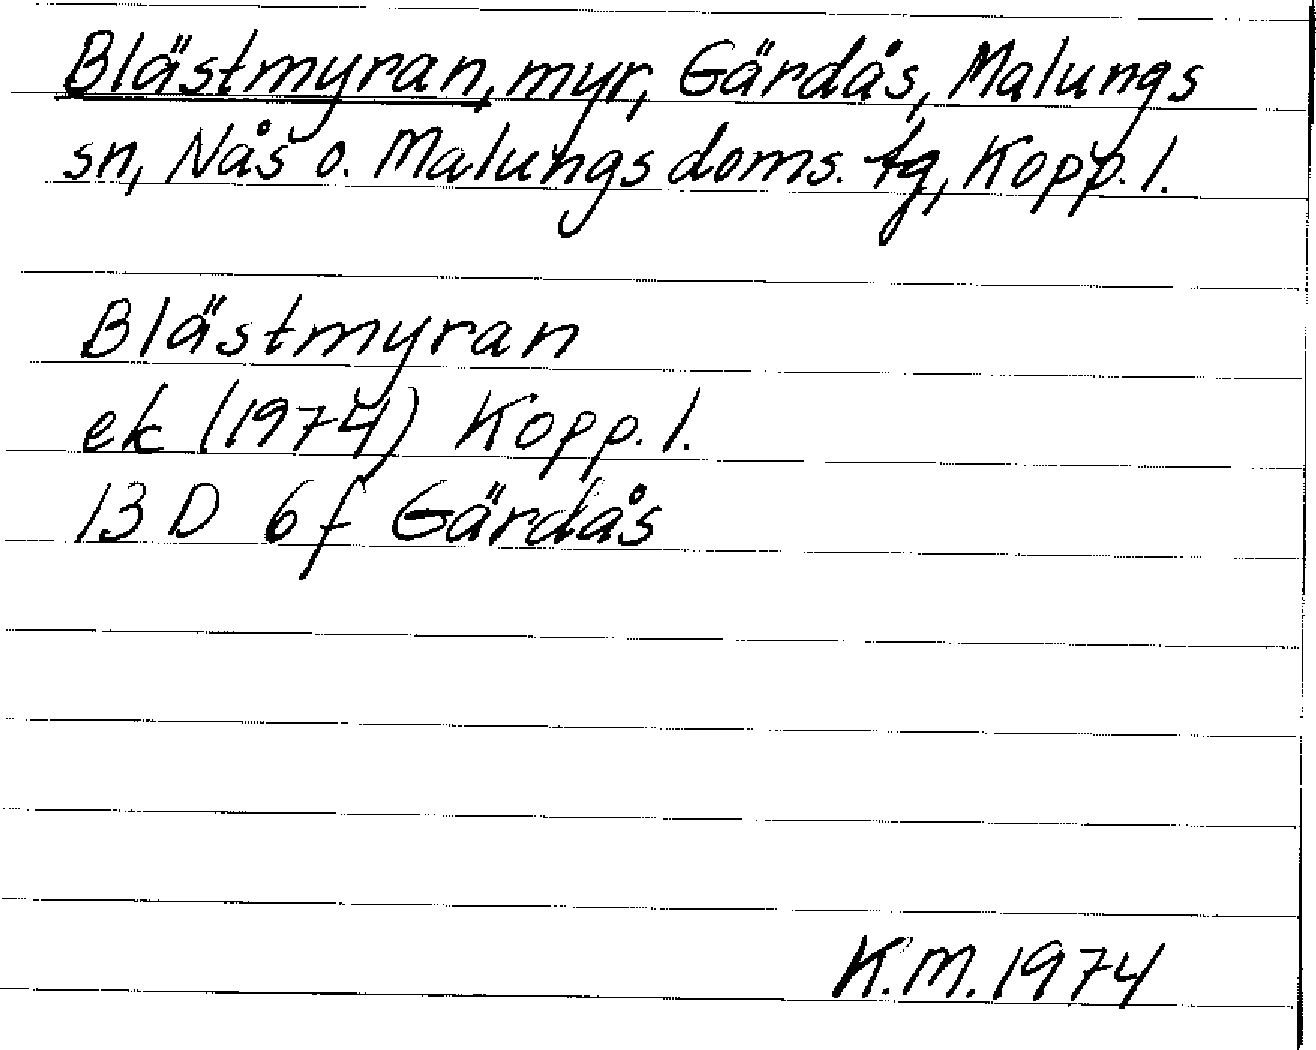 Blästmyran, myr, Gärdås, Malungs
sn, Nås o. Malungs doms. tg, Kopp. l.
Blästmyran
ek (1974) Kopp. l.
13 D 6f Gärdås
K.M. 1974